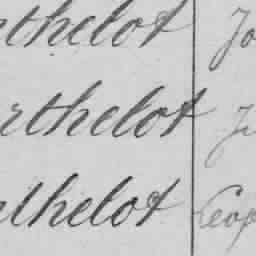 rthelot Jo
rthelot Ju
rthelot Leop